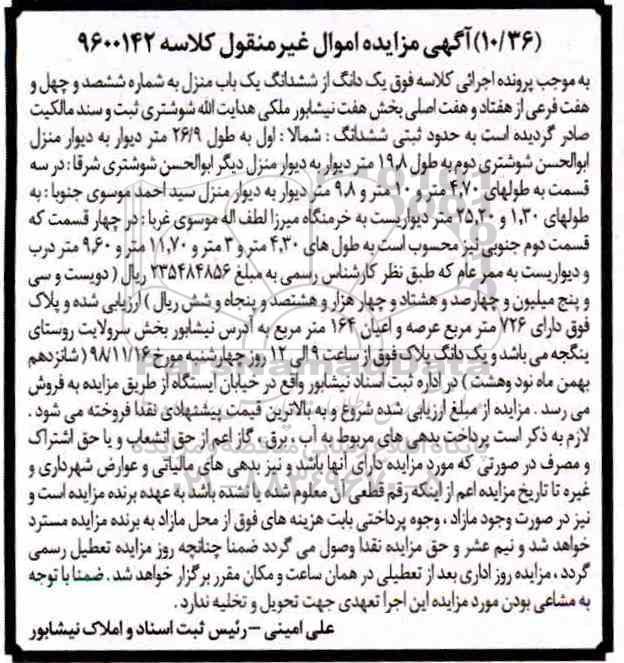 (۱۰/۳۶) آگهی مزایده اموال غیر منقول کلاسه ۹۶۰۰۱۴۲
به موجب پرونده اجرائی کلاسه فوق یک دانگ از ششدانگ یک باب منزل به شماره ششصد و چهل و
هفت فرعی از هفتاد و هفت اصلی بخش هفت نیشابور ملکی هدایت الله شوشتری ثبت و سند مالکیت
صادر گردیده است به حدود ثبتی ششدانگ : شمالا : اول به طول ۲۶/۹ متر دیوار به دیوار منزل
ابوالحسن شوشتری دوم به طول ۱۹,۸ متر دیوار به دیوار منزل دیگر ابوالحسن شوشتری شرقا : در سه
قسمت به طولهای ۴,۷۰ متر و ۱۰ متر و ۹,۸ متر دیوار به دیوار منزل سید احمد موسوی جنوبا : به
طولهای ۱,۳۰ و ۲۵,۲۰ متر دیواریست به خرمنگاه میرزا لطف اله موسوی غربا : در چهار قسمت که
قسمت دوم جنوبی نیز محسوب است به طول های ۴,۳۰ متر و ۳ متر و ۱۱,۷۰ متر و ۹,۶۰ متر درب
و دیواریست به ممر عام که طبق نظر کارشناس رسمی به مبلغ ۲۳۵۴۸۴۸۵۶ ریال ( دویست و سی
و پنج میلیون و چهارصد و هشتاد و چهار هزار و هشتصد و پنجاه و شش ریال ) ارزیابی شده و پلاک
فوق دارای ۷۲۶ متر مربع عرصه و اعیان ۱۶۴ متر مربع به آدرس نیشابور بخش سرولایت روستای
ینگجه می باشد و یک دانگ پلاک فوق از ساعت ۹ الی ۱۲ روز چهارشنبه مورخ ۹۸/۱۱/۱۶ ( شانزدهم
بهمن ماه نود وهشت ) در اداره ثبت اسناد نیشابور واقع در خیابان ایستگاه از طریق مزایده به فروش
می رسد . مزایده از مبلغ ارزیابی شده شروع و به بالاترین قیمت پیشنهادی نقدا فروخته می شود .
لازم به ذکر است پرداخت بدهی های مربوط به آب ، برق ، گاز اعم از حق انشعاب و یا حق اشتراک
و مصرف در صورتی که مورد مزایده دارای آنها باشد و نیز بدهی های مالیاتی و عوارض شهرداری و
غیره تا تاریخ مزایده اعم از اینکه رقم قطعی آن معلوم شده یا نشده باشد به عهده برنده مزایده است و
نیز در صورت وجود مازاد ، وجوه پرداختی بابت هزینه های فوق از محل مازاد به برنده مزایده مسترد
خواهد شد و نیم عشر و حق مزایده نقدا وصول می گردد ضمنا چنانچه روز مزایده تعطیل رسمی
گردد ، مزایده روز اداری بعد از تعطیلی در همان ساعت و مکان مقرر برگزار خواهد شد . ضمنا با توجه
به مشاعی بودن مورد مزایده این اجرا تعهدی جهت تحویل و تخلیه ندارد .
علی امینی – رئیس ثبت اسناد و املاک نیشابور